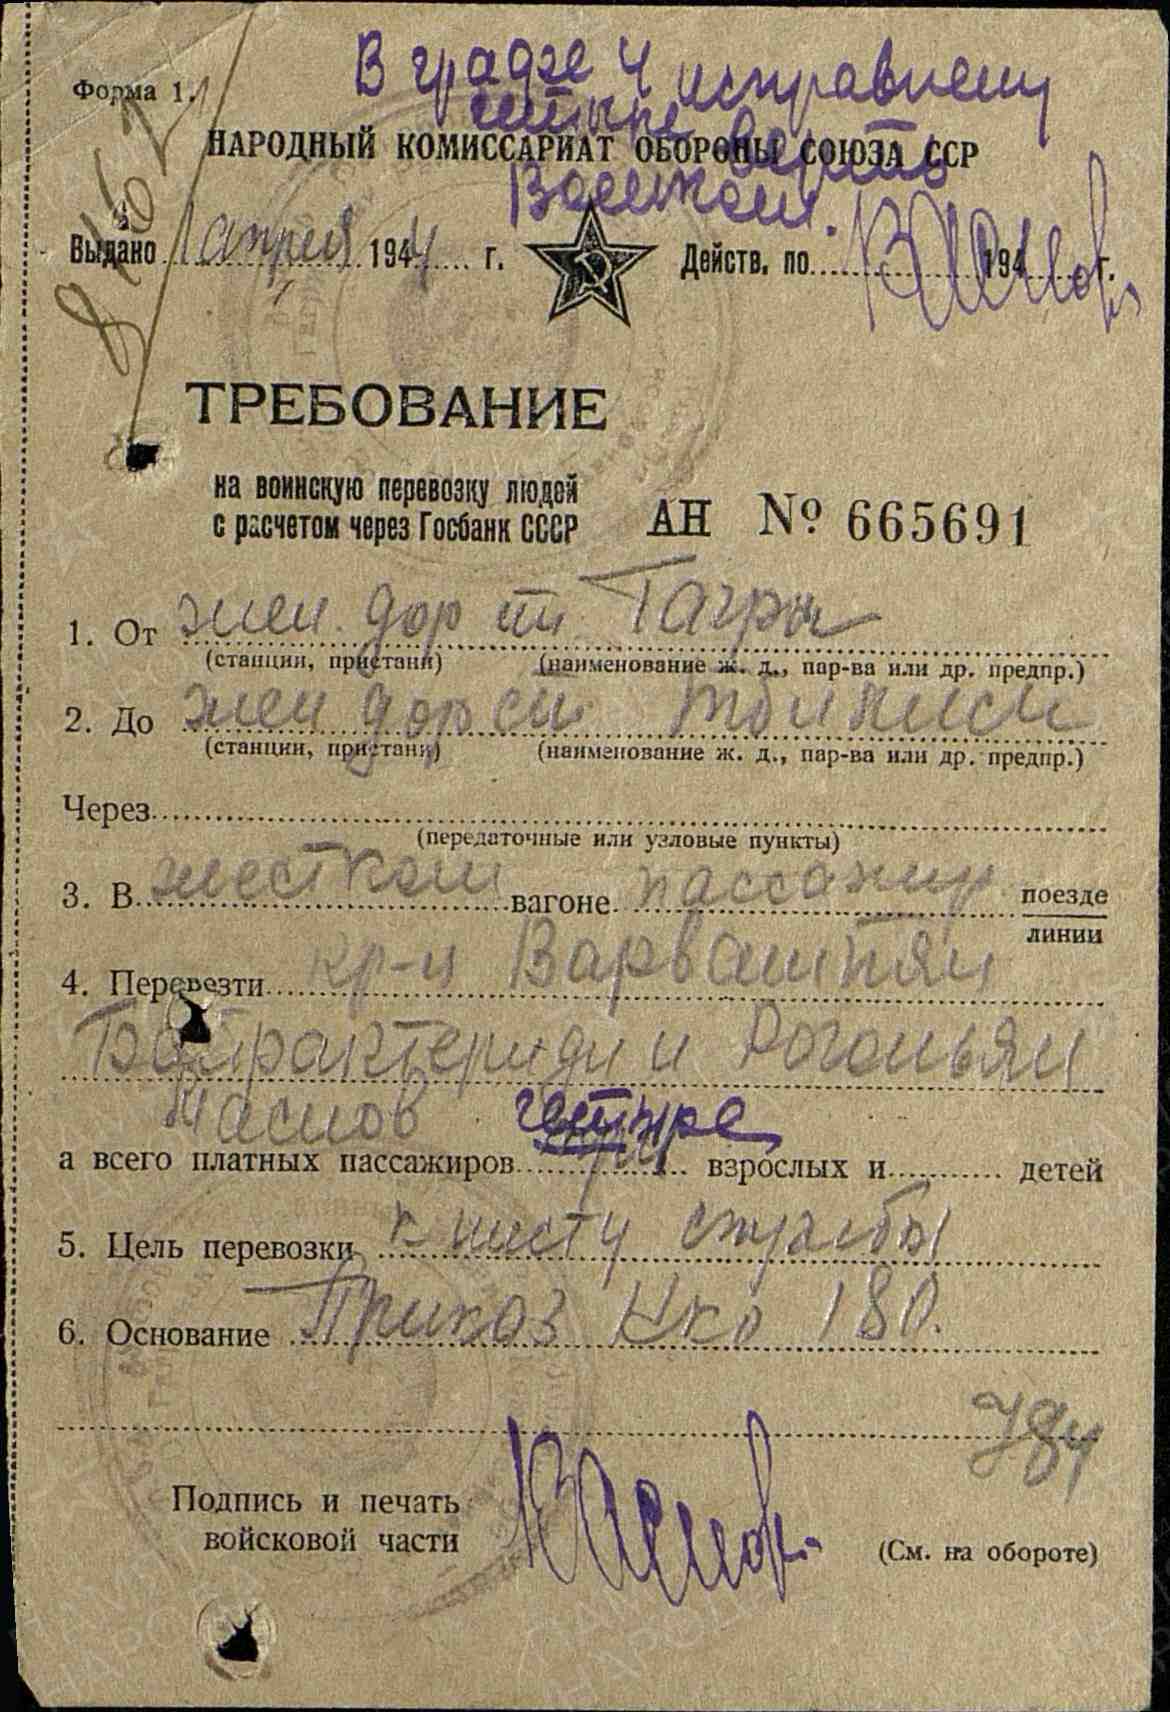 В графе 4 исправлению
Форма 1.
четыре верить
НАРОДНЫЙ КОМИССАРИАТ ОБОРОНЫ СОЮЗА ССР
Военком.
Выдано 1 апреля 1944 г. Действ. по 194 г.
ТРЕБОВАНИЕ
на воинскую перевозку людей
с расчетом через Госбанк СССР
АН № 665691
1. От жел. дор ст Гагры
(станции, пристани) (наименование ж. д., пар-ва или др. предпр.)
2. До жел дор ст Тбилиси
(станции, пристани) (наименование ж. д., пар-ва или др. предпр.)
Через
(передаточные или узловые пункты)
3. В жестком вагоне пассажир поезде
линии
4. Перевезти кр-ц
и
Маслов четыре
а всего платных пассажиров взрослых и детей
5. Цель перевозки к месту службы
6. Основание Приказ НКО 180.
784
Подпись и печать
войсковой части
(См. на обороте)